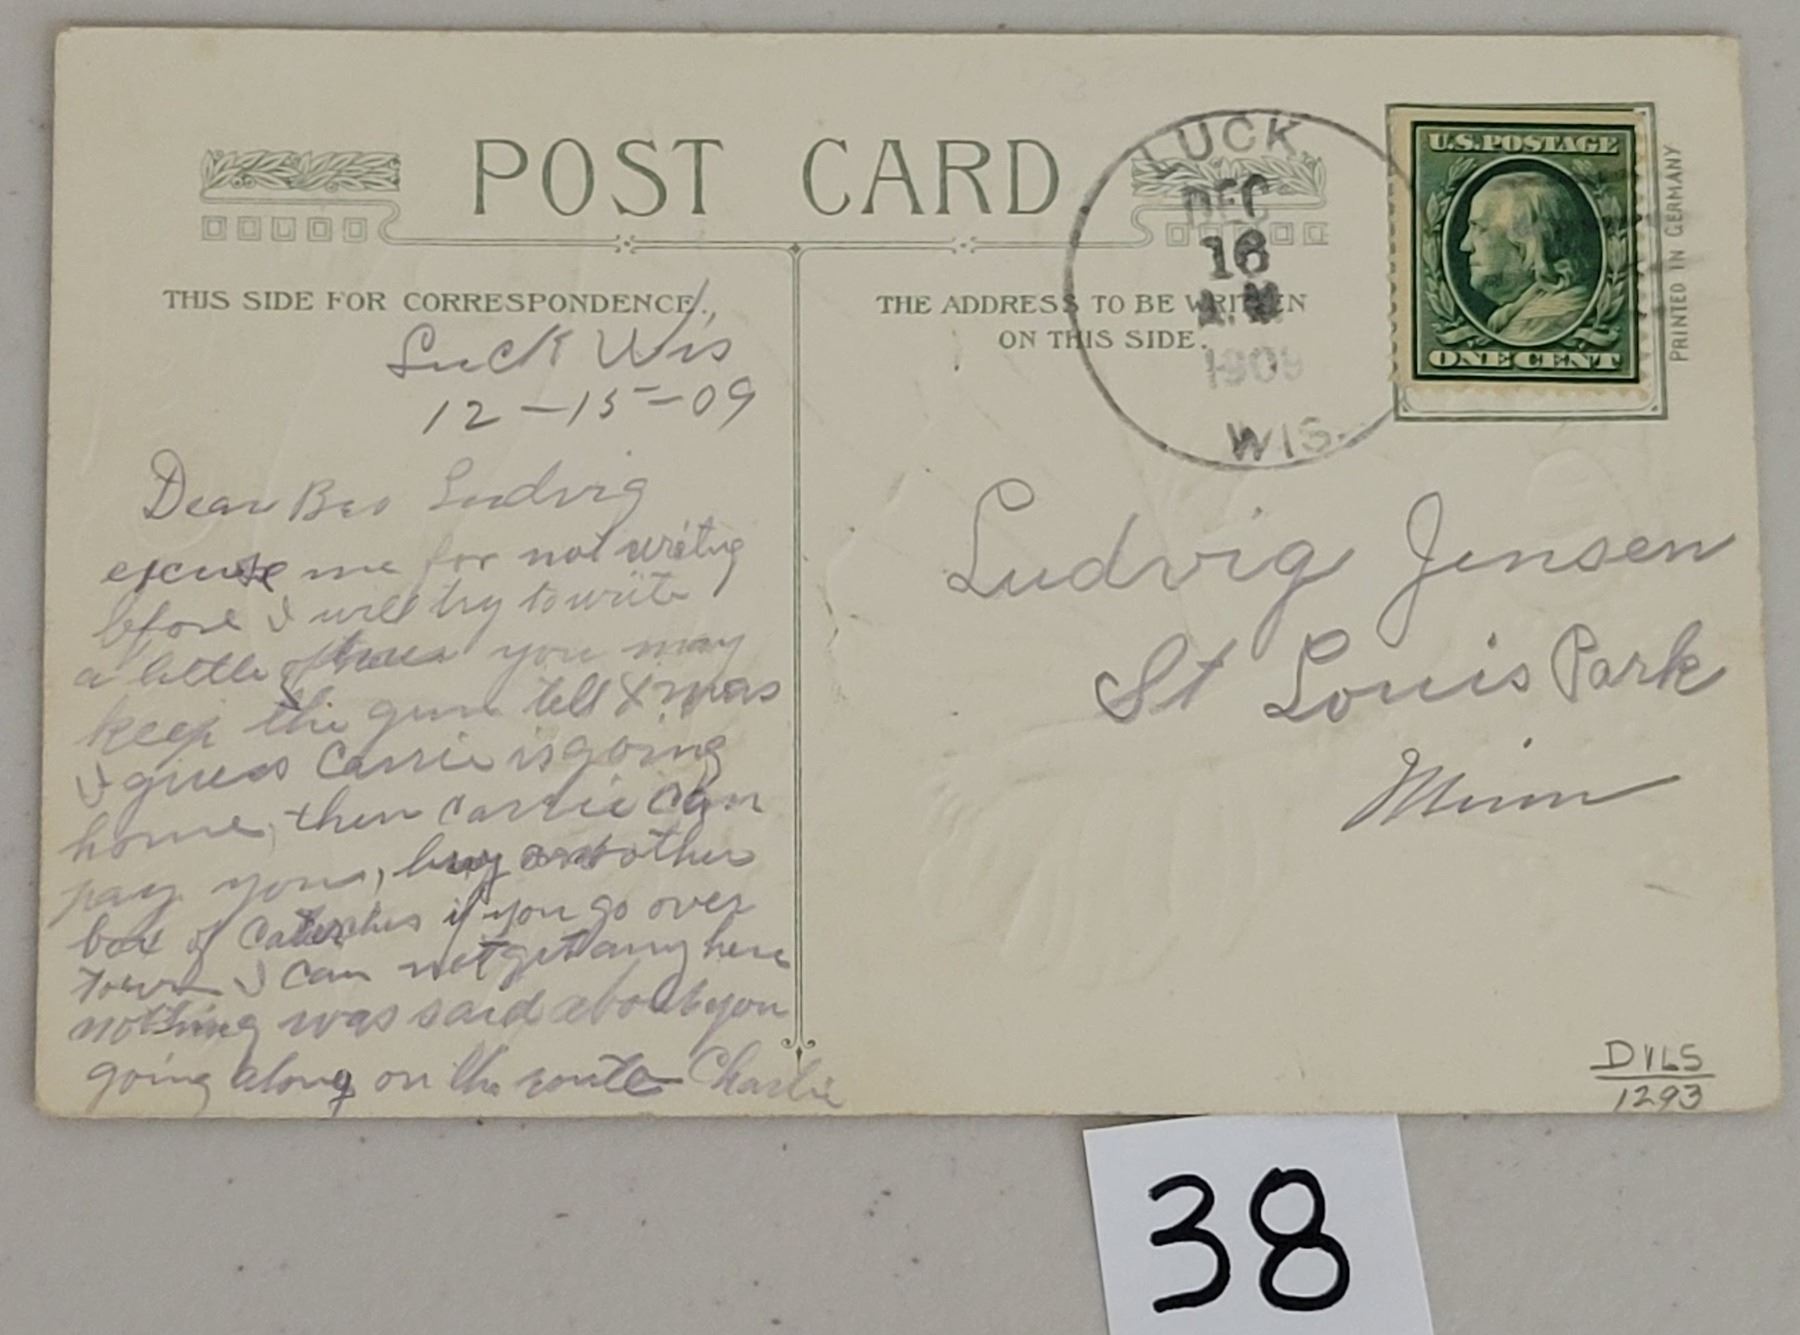 POST CARD
THIS SIDE FOR CORRESPONDENCE.
THE ADDRESS TO BE WRITTEN
ON THIS SIDE.
LUCK
DEC
16
A.M.
1909
WIS.
U.S. POSTAGE
ONE CENT
PRINTED IN GERMANY
Luck Wis
12-15-09
Dear Bro Ludvig
excuse me for not writing
before I will try to write
a little you may
keep the gun tell X mas
I guess Carrie is going
home, then Carrie can
pay you, buy another
box of if you go over
town I can not get any here
nothing was said about you
going along on the route Charlie
Ludvig Jensen
St Louis Park
Minn
D165
1293
38